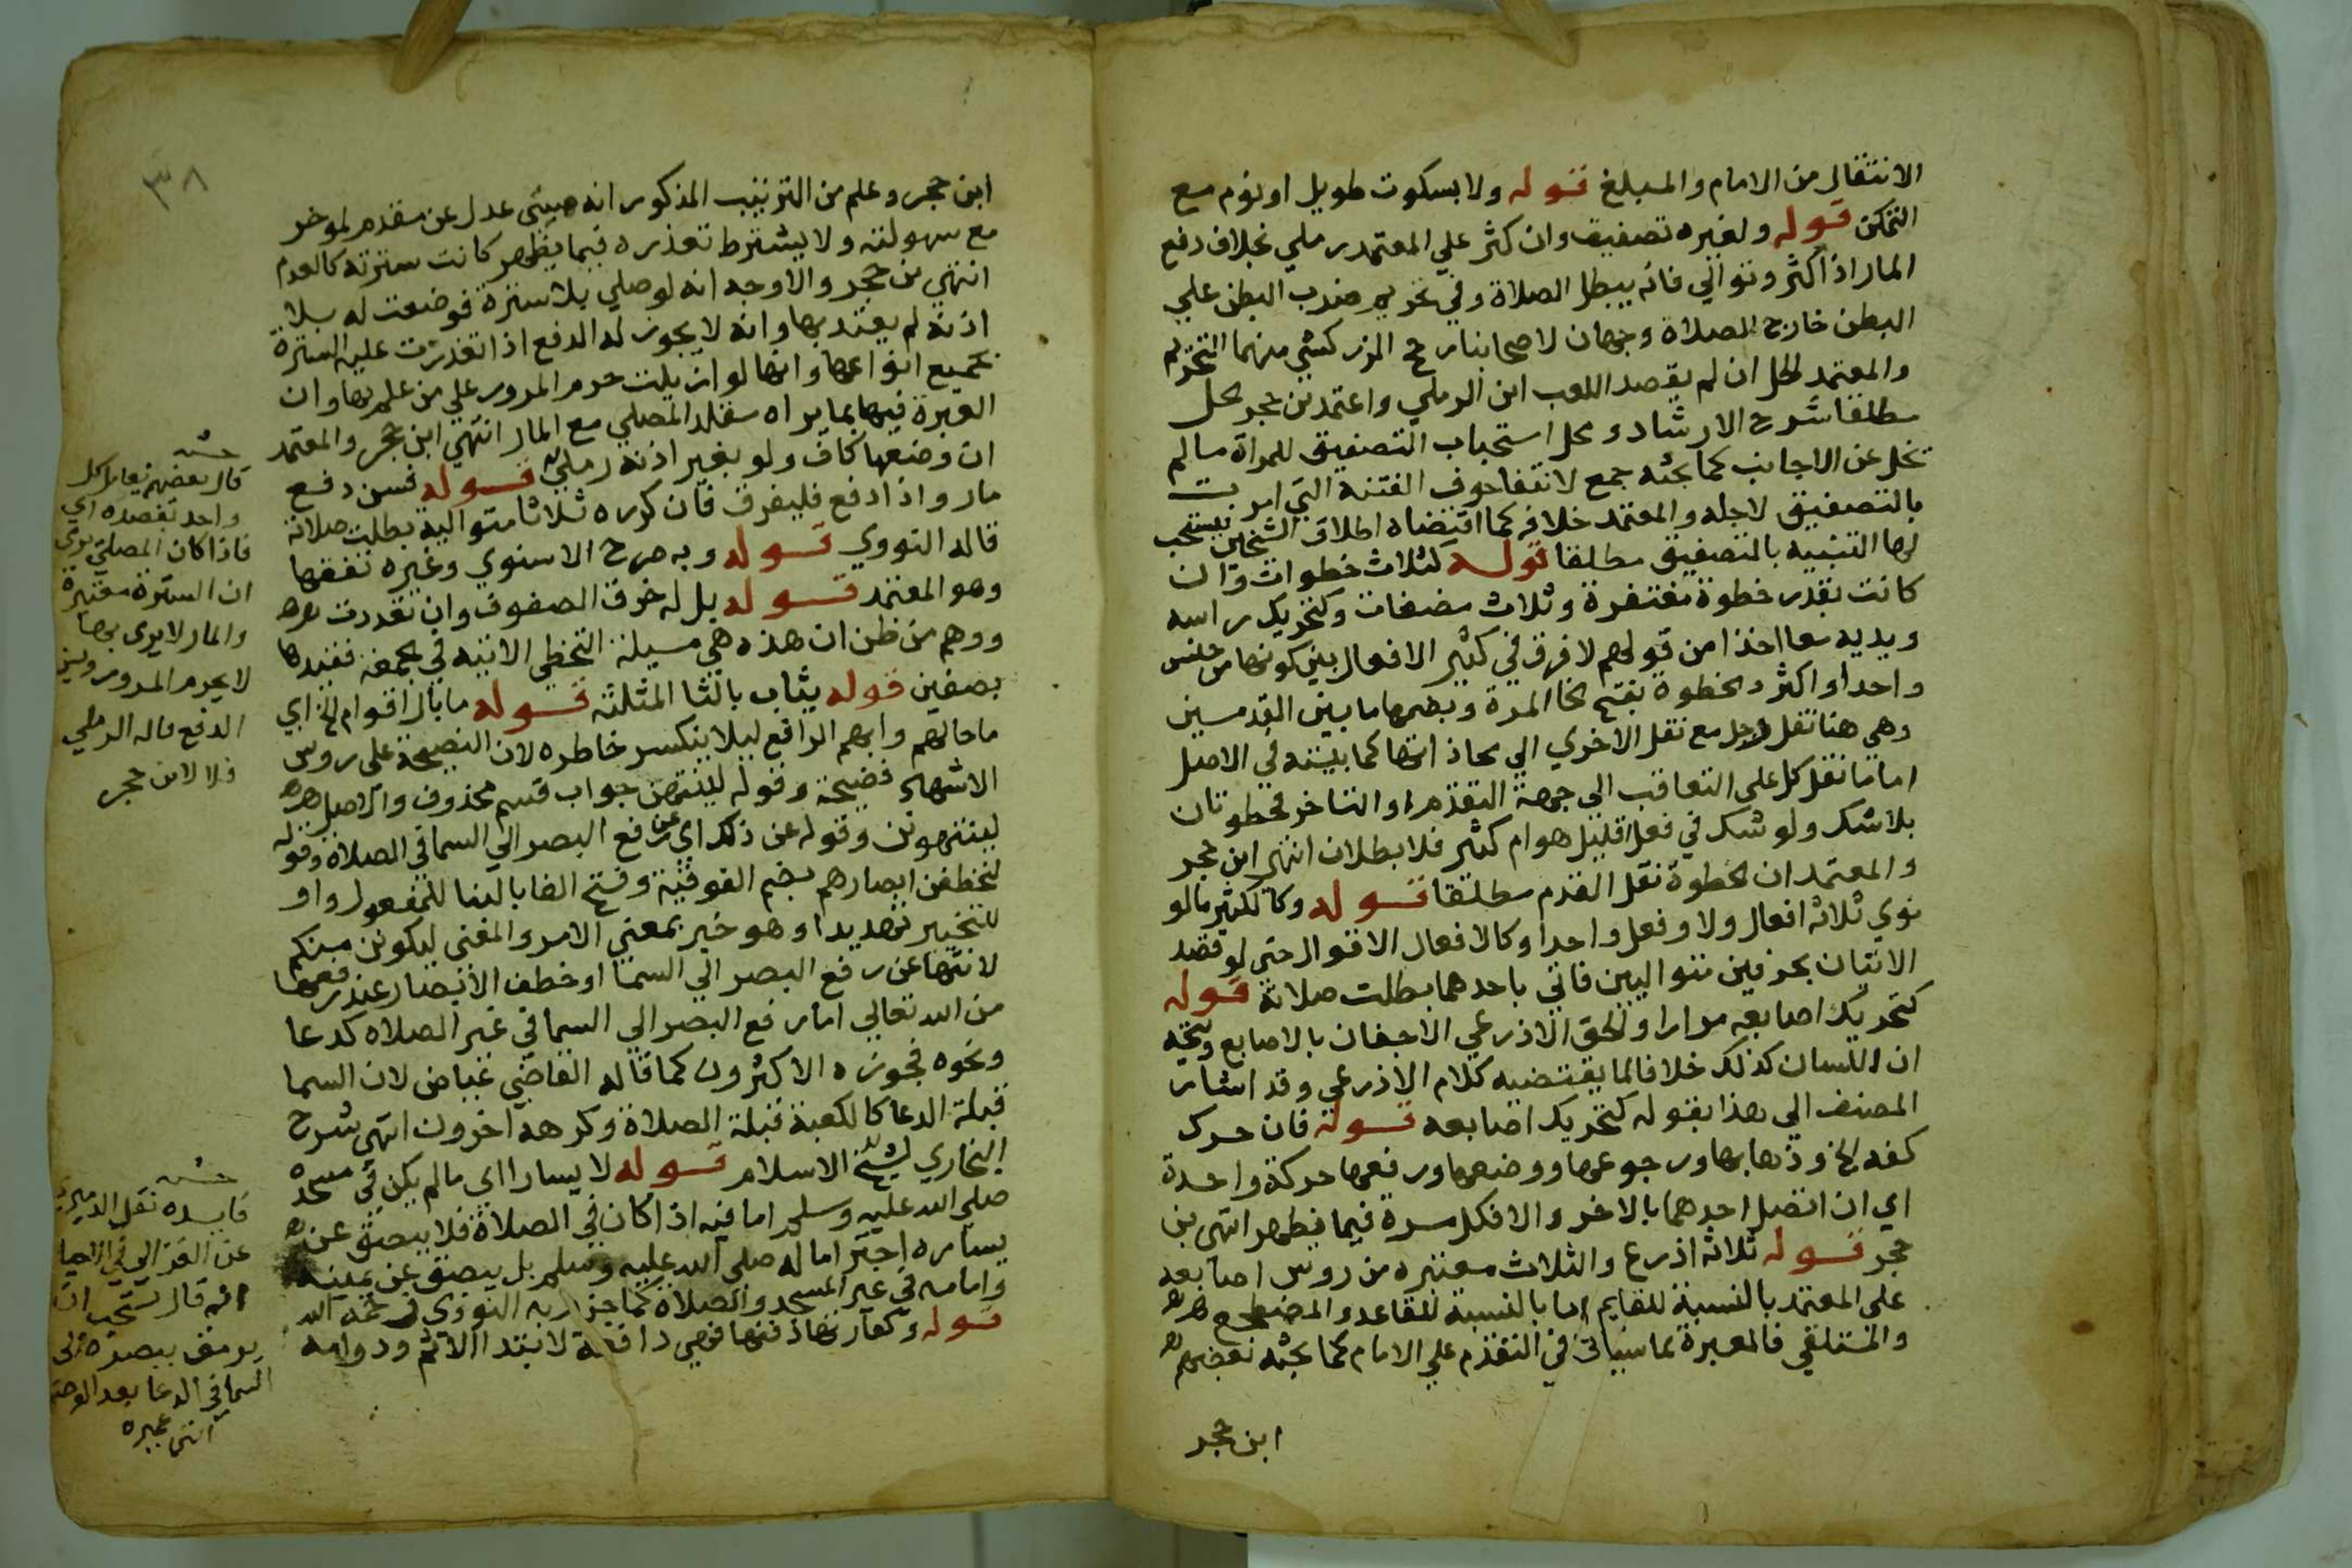 الانتقال من الامام والمبلغ قوله ولا بسكوت طويل او نوم مع
التمكن قوله ولغيره تصفيق وان كثر علي المعتمد رملي بخلاف دفع
المار اذا كثر وتوالي فانه يبطل الصلاة وفي تحريم ضرب البطن علي
البطن خارج الصلاة وجهان لاصحابنا رجح الزركشي منهما التحريم
والمعتمد الحل ان لم يقصد اللعب ابن الرملي واعتمد بن حجر الحل
مطلقا شرح الارشاد ومحل استحباب التصفيق للمراة ما لم
تخل عن الاجانب كما بحثه جمع لانتفا خوف الفتنة التي امرت
بالتصفيق لاجله والمعتمد خلافه كما اقتضاه اطلاق الشيخين فيستحب
لها التنبيه بالتصفيق مطلقا قوله كثلاث خطوات وان
كانت بقدر خطوة مغتفرة وثلاث مضغات وكتحريك راسه
ويديه معا اخذا من قولهم لا فرق في كثير الافعال بين كونها من جنس
واحد او اكثر والخطوة بفتح الخا المرة وبضمها ما بين القدمين
وهي هنا نقل رجل مع نقل الاخري الي محاذاتها كما بينته في الاصل
اما نقل كل علي التعاقب الي جهة التقدم او التاخر فخطوتان
بلا شك ولو شك في فعل اقليل هو ام كثير فلا بطلان انتهي ابن حجر
والمعتمد ان الخطوة نقل القدم مطلقا قوله وكالكثير ما لو
نوي ثلاثة افعال ولا وفعل واحدا وكالافعال الاقوال حتي لو قصد
الاتيان بحرفين متواليين فاتي باحدهما بطلت صلاته قوله
كتحريك اصابعه مرارا والحق الاذرعي الاجفان بالاصابع ويتجه
ان اللسان كذلك خلافا لما يقتضيه كلام الاذرعي وقد اشار
المصنف الي هذا بقوله كتحريك اصابعه قوله فان حرك
كفه الخ وذهابها ورجوعها ووضعها ورفعها حركة واحدة
اي ان اتصل احدهما بالاخر والا فكل مرة فيما يظهر انتهي بن
حجر قوله ثلاثة اذرع والثلاث معتبره من روس اصابعه
علي المعتمد بالنسبة للقايم اما بالنسبة للقاعد والمضطجع
والمستلقي فالعبرة بما سياتي في التقدم علي الامام كما بحثه بعضهم
ابن حجر
٣٨
ابن حجر وعلم من الترتيب المذكور انه متي عدل عن مقدم لموخر
مع سهولته ولا يشترط تعذره فيما يظهر كانت سترته كالعدم
انتهي بن حجر والاوجه انه لو صلي بلا سترة فوضعت له بلا
اذنه لم يعتد بها وانه لا يجوز له الدفع اذا تعذرت عليه السترة
بجميع انواعها وانها لو ازيلت حرم المرور علي من علم بها وان
العبرة فيها بما يراه مقلد المصلي مع المار انتهي ابن حجر والمعتمد
ان وضعها كاف ولو بغير اذنه رملي قوله فسن دفع
مار واذا دفع فليفرق فان كرره ثلاثا متوالية بطلت صلاته
قاله النووي قوله وبه صرح الاسنوي وغيره تفقها
وهو المعتمد قوله بل له خرق الصفوف وان تعددت
ووهم من ظن ان هذه هي مسيلة التخطي الاتية في الجمعة فقيدها
بصفين قوله يثاب بالثا المثلثه قوله ما بال اقوام الخ اي
ما حالهم وابهم الرافع ليلا ينكسر خاطره لان النصيحة علي روس
الاشهاد فضيحة وقوله لينتهن جواب قسم محذوف والاصل
لينتهونن وقوله عن ذلك اي عن رفع البصر الي السما في الصلاة وقوله
لتخطفن ابصارهم بضم الفوقية وفتح الفا بالبنا للمفعول واو
للتخيير تهديدا وهو خبر بمعني الامر والمعني ليكونن منكم
لانتها عن رفع البصر الي السما او خطف الابصار عند رفعها
من الله تعالي اما رفع البصر الي السما في غير الصلاه كدعا
ونحوه فجوزه الاكثرون كما قاله القاضي عياض لان السما
قبلة الدعا كالكعبة قبلة الصلاة وكرهه اخرون انتهي شرح
البخاري لشيخ الاسلام قوله لا يسارا اي ما لم يكن في مسجده
صلي الله عليه وسلم اما فيه اذا كان في الصلاة فلا يبصق عن
يساره احتراما له صلي الله عليه وسلم بل يبصق عن يمينه
وامامه في غير المسجد والصلاة كما جزم به النووي رحمه الله
قوله وكفارتها دفنها فهي دافعة لابتدا الاثم ودوامه
قال بعضهم يعامل كل
واحد بقصده اي
فاذا كان المصلي يري
ان السترة معتبرة
والمار لا يري بها
لا يحرم المرور ويسن
الدفع قاله الرملي
فلا لابن حجر
فايسده نقل الدميري
عن الغزالي في الاحيا
انه قال يستحب ان
يرمق ببصره الي
السما في الدعا بعد الوضو
انتهي عميره